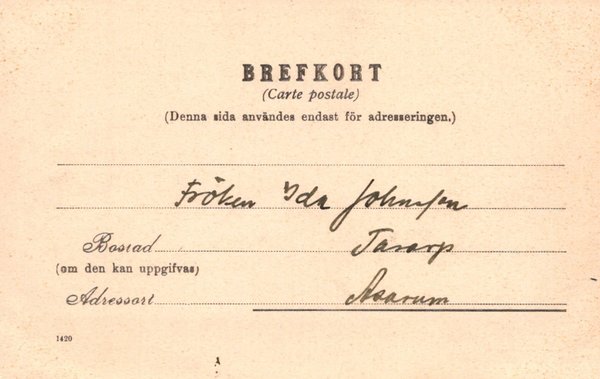 BREFKORT
(Carte postale)
(Denna sida användes endast för adresseringen.)
Fröken Ida Johnsson
Bostad Tararp
(om den kan uppgifvas)
Adressort Asarum
1420